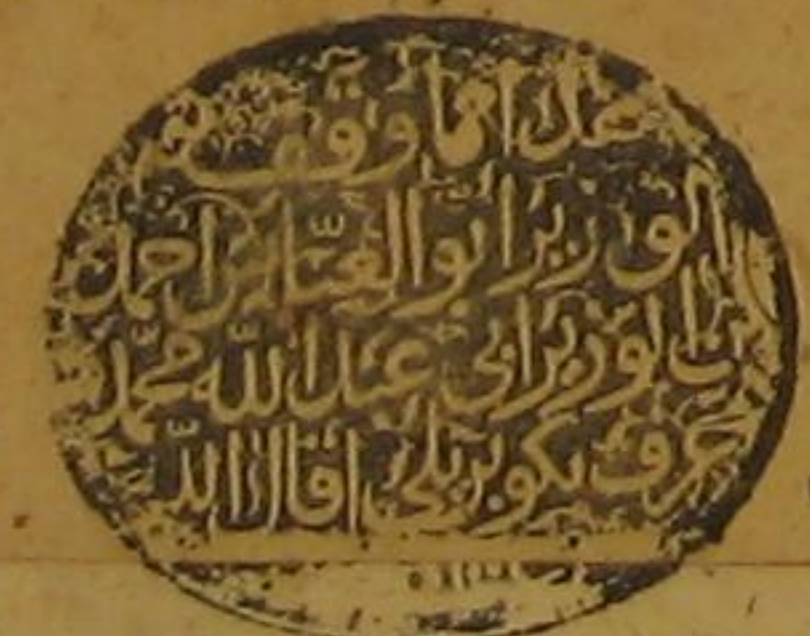 هذا ما وقفه
الوزير ابو العباس احمد
ابن الوزير ابي عبد الله محمد
عرف بكوبريلي اقال الله